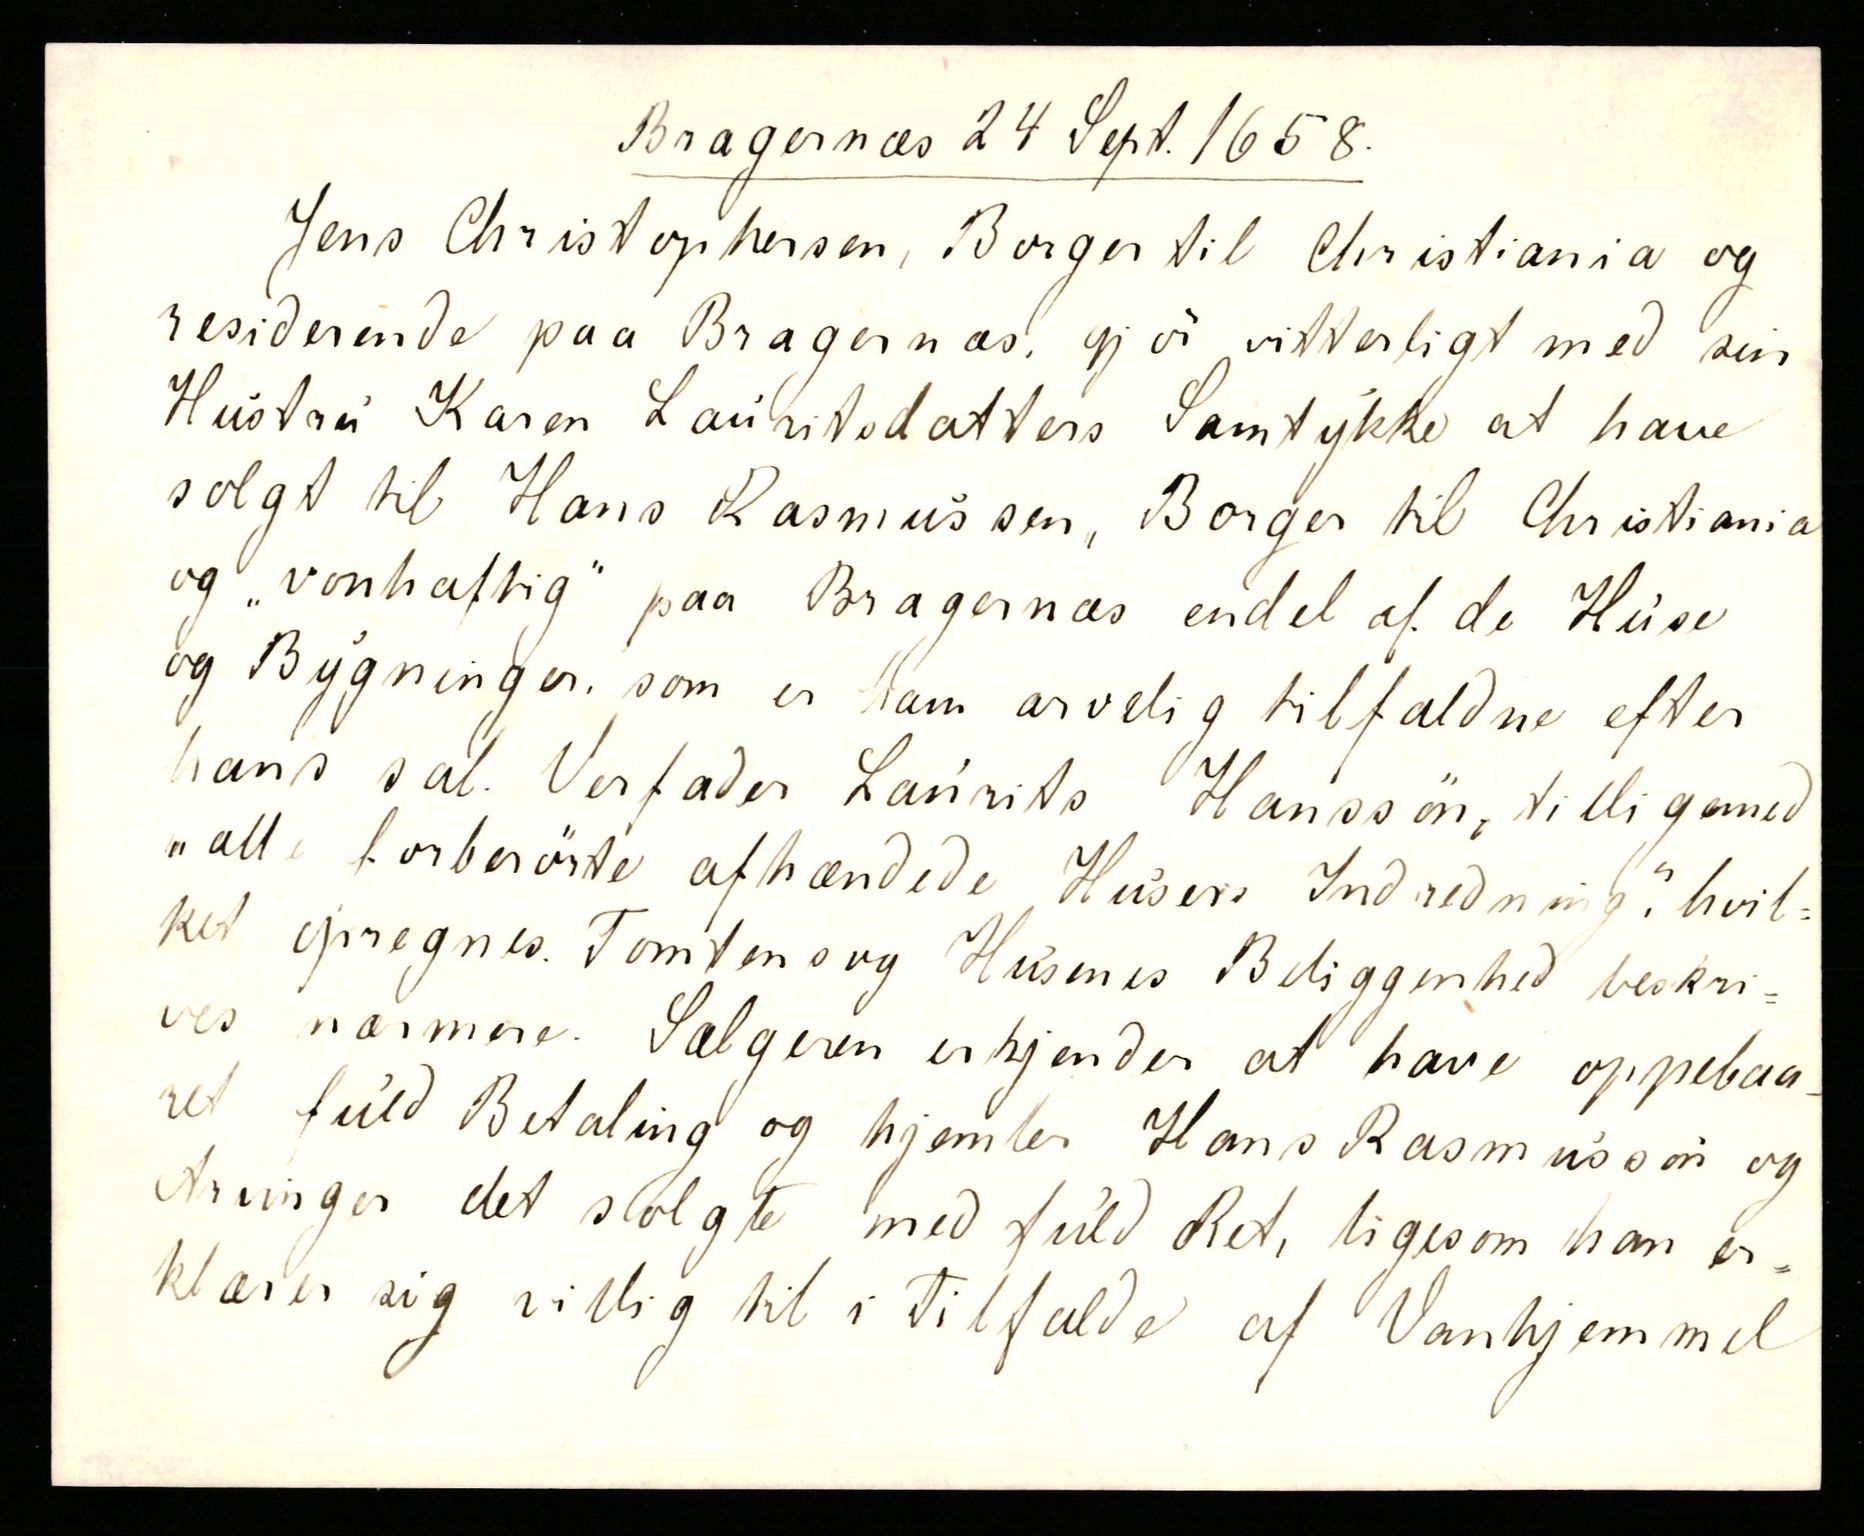 Bragernæs 24 Sept. 1658.
Jens Christophersen, Borger til Christiania og
residerende paa Bragernæs, gjör vitterligt med sin
Hustru Karen Lauritsdatters Samtykke at have
solgt til Hans Rasmussen, Borger til Christiania
og „vonhaftig" paa Bragernæs endel af de Huse
og Bygninger, som er ham arvelig tilfaldne efter
hans sal. Verfader Laurits Hanssön, tilligemed
„alle forberörte afhændede Husers Indredning", hvil=
ket opregnes. Tomtens og Husenes Beliggenhed beskri=
ves nærmere. Sælgeren erkjender at have oppebaa-
ret fuld Betaling og hjemler Hans Rasmussön og
Arvinger det solgte med fuld Ret, ligesom han er=
klærer sig villig til i Tilfælde af Vanhjemmel